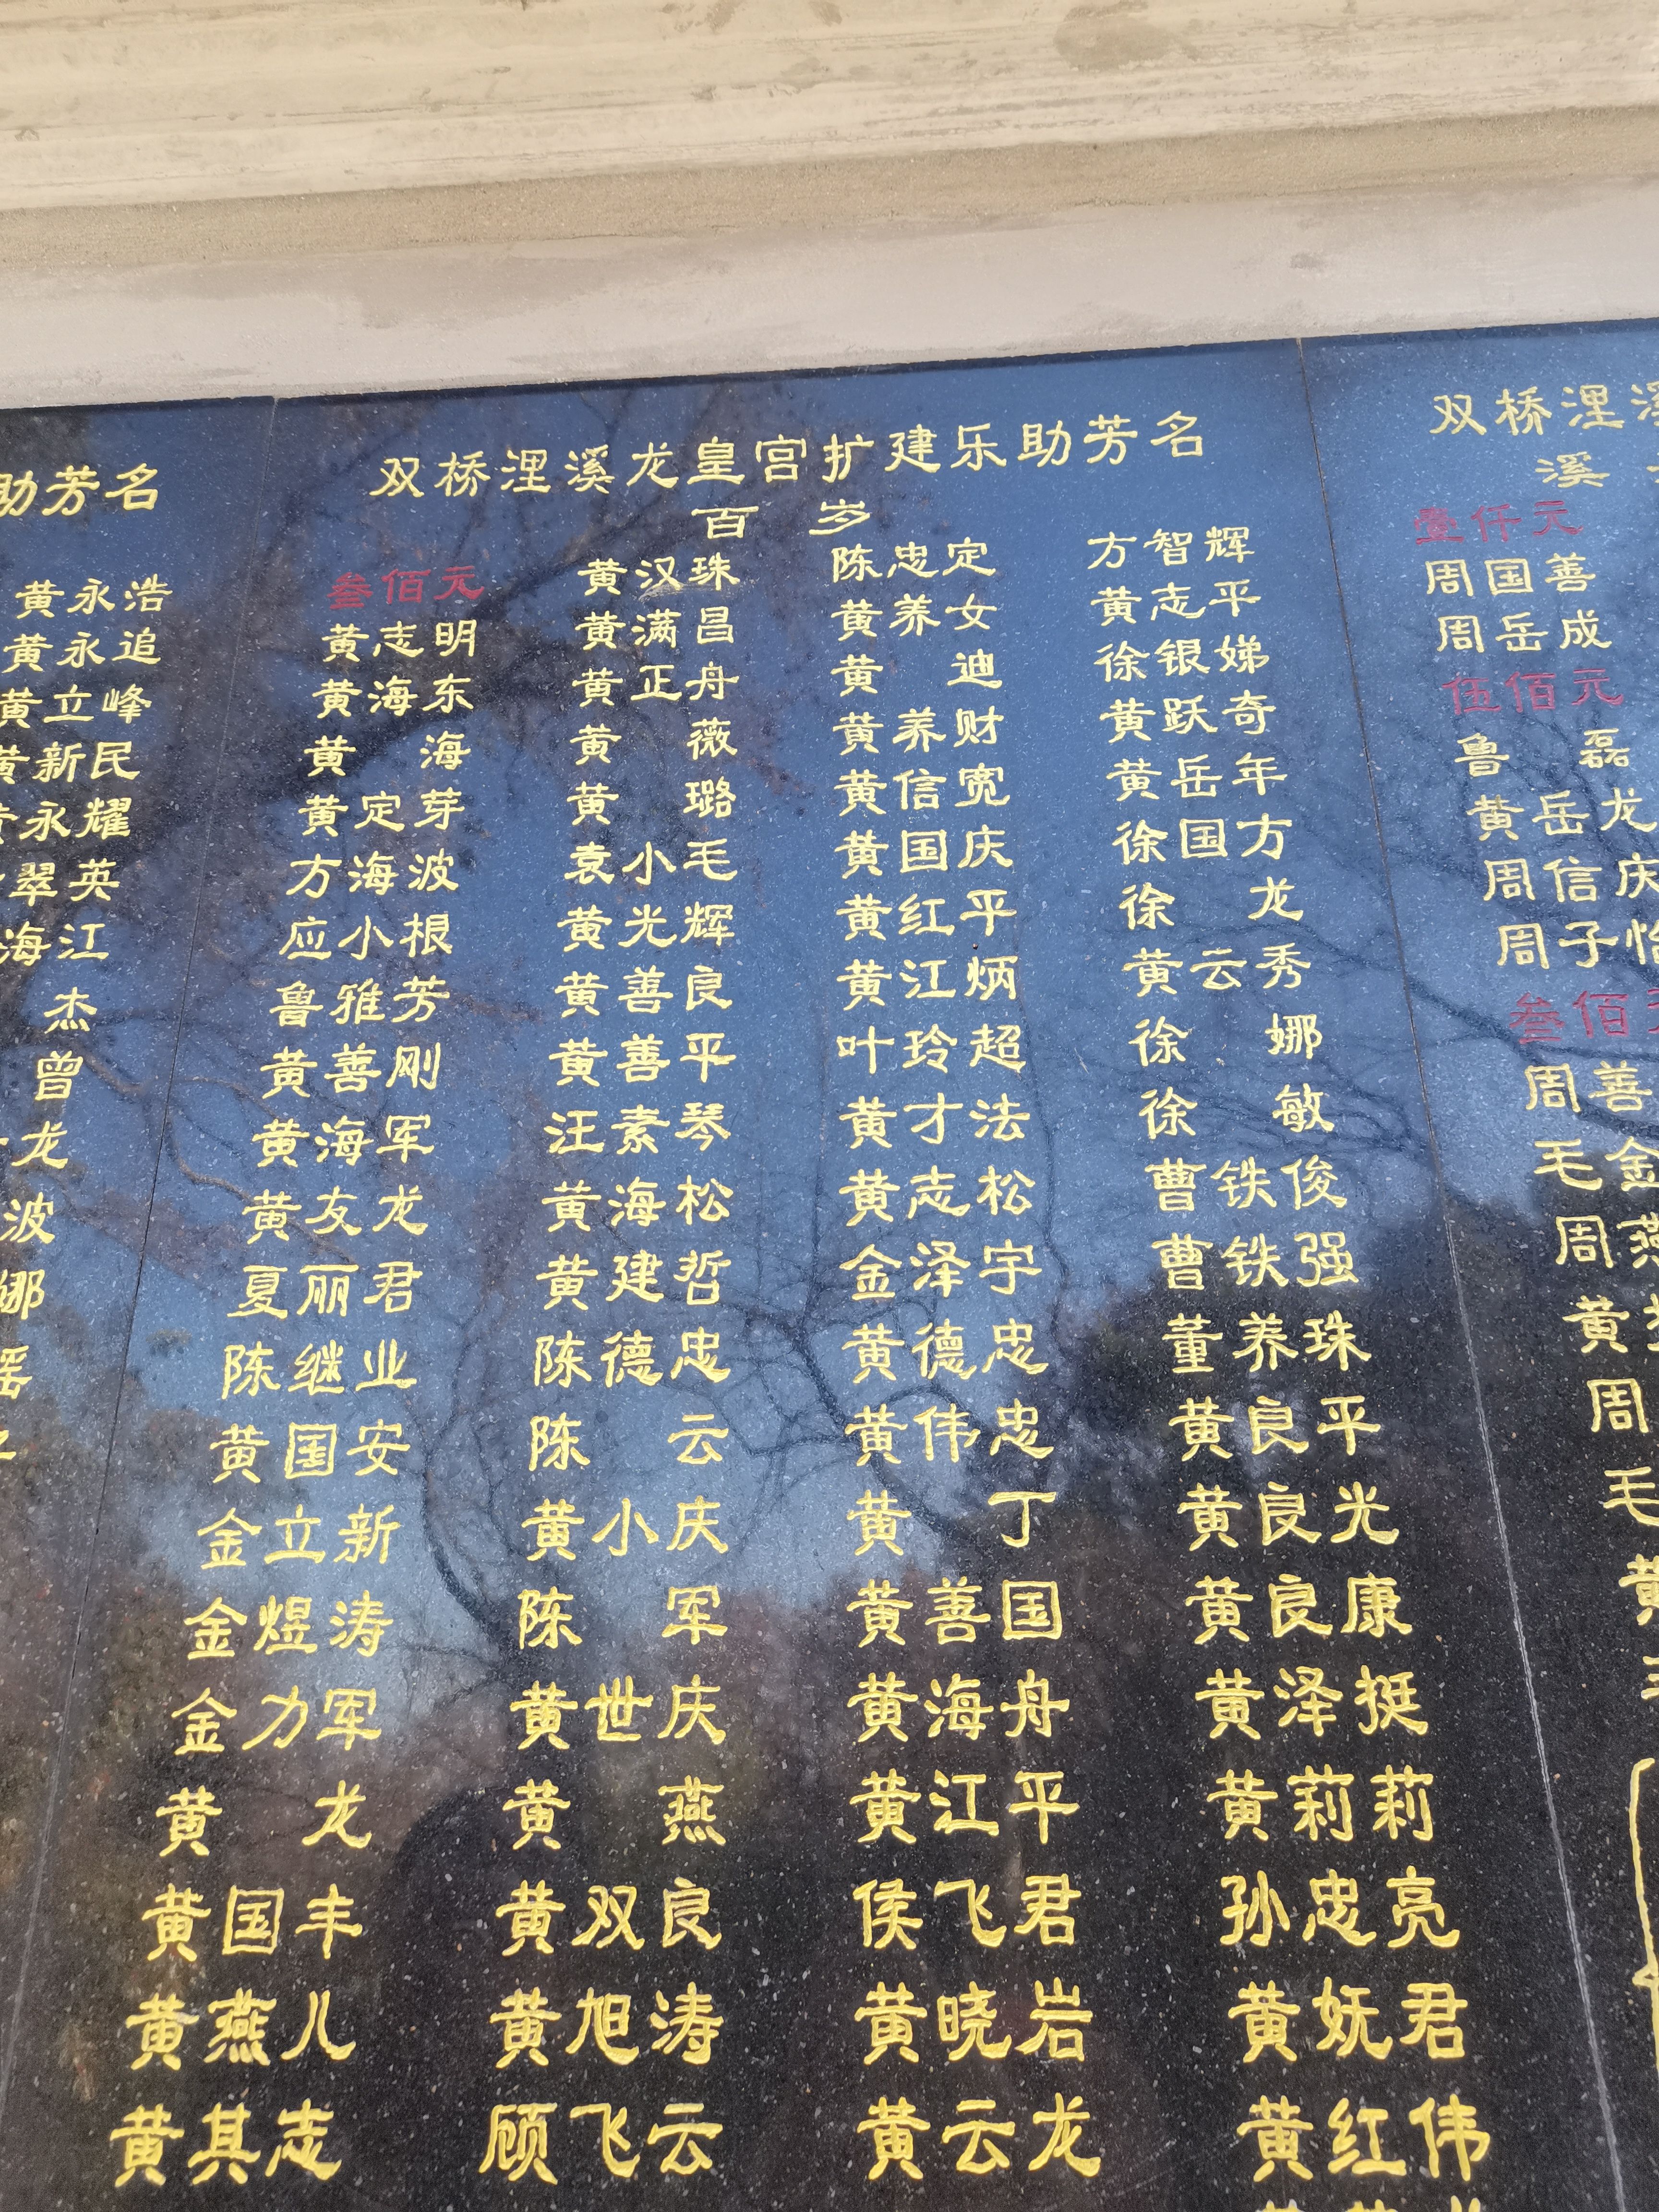 助芳名
黄永浩
黄永追
黄立峰
黄新民
永耀
翠英
海江
杰
曾
龙
波
娜
双桥浬溪龙皇宫扩建乐助芳名
百 岁
叁佰元
黄志明
黄海东
黄 海
黄定芽
方海波
应小根
鲁雅芳
黄善刚
黄海军
黄友龙
夏丽君
陈继业
黄国安
金立新
金煜涛
金力军
黄 龙
黄国丰
黄燕儿
黄其志
黄汉珠
黄满昌
黄正舟
黄 薇
黄 璐
袁小毛
黄光辉
黄善良
黄善平
汪素琴
黄海松
黄建哲
陈德忠
陈 云
黄小庆
陈 军
黄世庆
黄 燕
黄双良
黄旭涛
顾飞云
陈忠定
黄养女
黄 迪
黄养财
黄信宽
黄国庆
黄红平
黄江炳
叶玲超
黄才法
黄志松
金泽宇
黄德忠
黄伟忠
黄 丁
黄善国
黄海舟
黄江平
侯飞君
黄晓岩
黄云龙
方智辉
黄志平
徐银娣
黄跃奇
黄岳年
徐国方
徐 龙
黄云秀
徐 娜
徐 敏
曹铁俊
曹铁强
董养珠
黄良平
黄良光
黄良康
黄泽挺
黄莉莉
孙忠亮
黄妩君
黄红伟
双桥浬溪
溪
壹仟元
周国善
周岳成
伍佰元
鲁 磊
黄岳龙
周信庆
周子怡
叁佰元
周善
毛金
周燕
黄
周
毛
黄